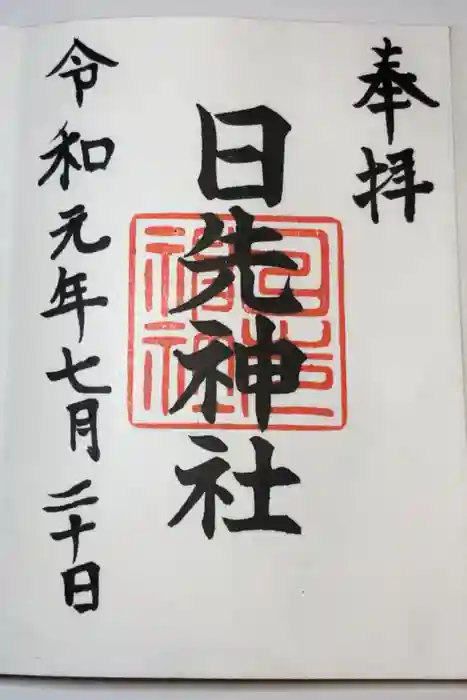 奉拝
日先神社
令和元年七月二十日